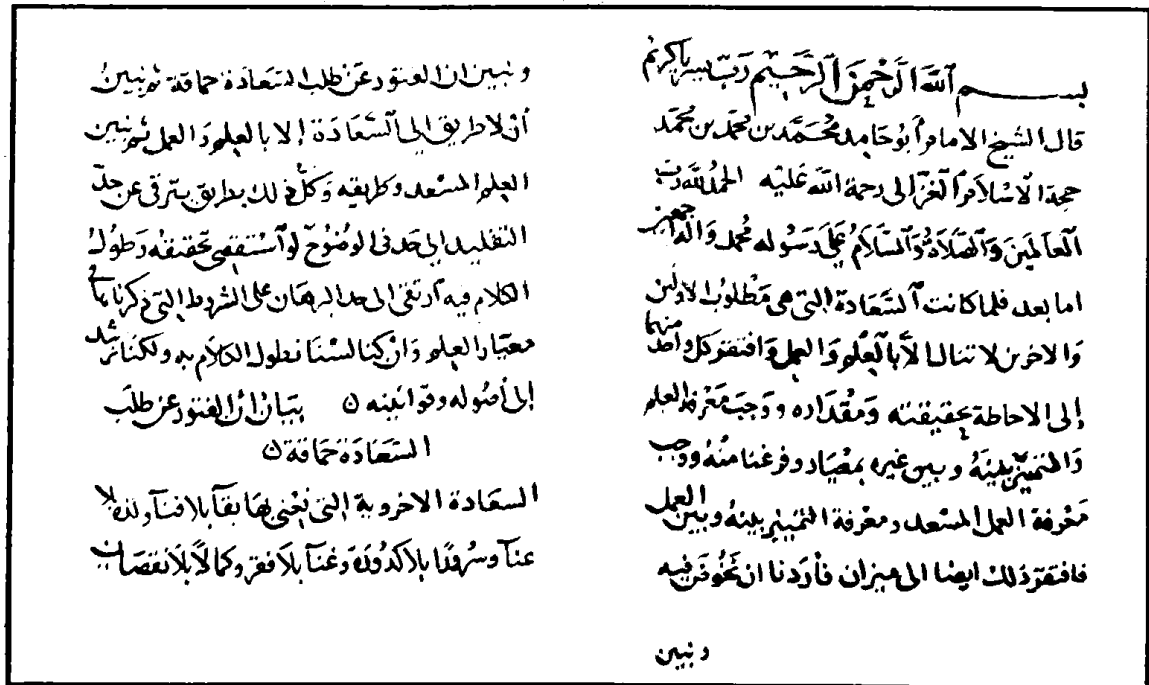 بسم الله الرحمن الرحيم رب يسر يا كريم
قال الشيخ الامام أبو حامد محمد بن محمد بن محمد
حجة الاسلام الغزالى رحمة الله عليه الحمد لله رب
العالمين والصلاة والسلام على رسوله محمد واله أجمعين
اما بعد فلما كانت السعادة التى هى مطلوب الاولين
والاخرين لا تنال الا بالعلم والعمل وافتقر كل واحد منهما
إلى الاحاطة بحقيقته ومقداره ووجب معرفة العلم
والتمييز بينه وبين غيره بمعيار وفرغنا منه ووجب
معرفة العمل المسعد ومعرفة التمييز بينه وبين العمل
فافتقر ذلك ايضا الى ميزان فأردنا ان نخوض فيه
ونبين
ونبين ان الفتور عن طلب السعادة حماقة ثم نبين
أن لا طريق إلى السعادة إلا بالعلم والعمل ثم نبين
العلم المسعد وطريقه وكل ذلك بطريق يترقى عن حد
التقليد إلى حد فى الوضوح لو استقصى تحقيقه وطول
الكلام فيه ارتقى الى حد البرهان على الشروط التى ذكرناها فى
معيار العلم وان كنا لسنا نطول الكلام به ولكنا نرشد
إلى أصوله وقوانينه ن بيان أن الفتور عن طلب
السعادة حماقة ن
السعادة الاخروية التى نعنى بها بقآ بلا فنآ ولذة بلا
عنآ وسرورا بلا كدورة وغنآ بلا فقر وكمالا بلا نقصان